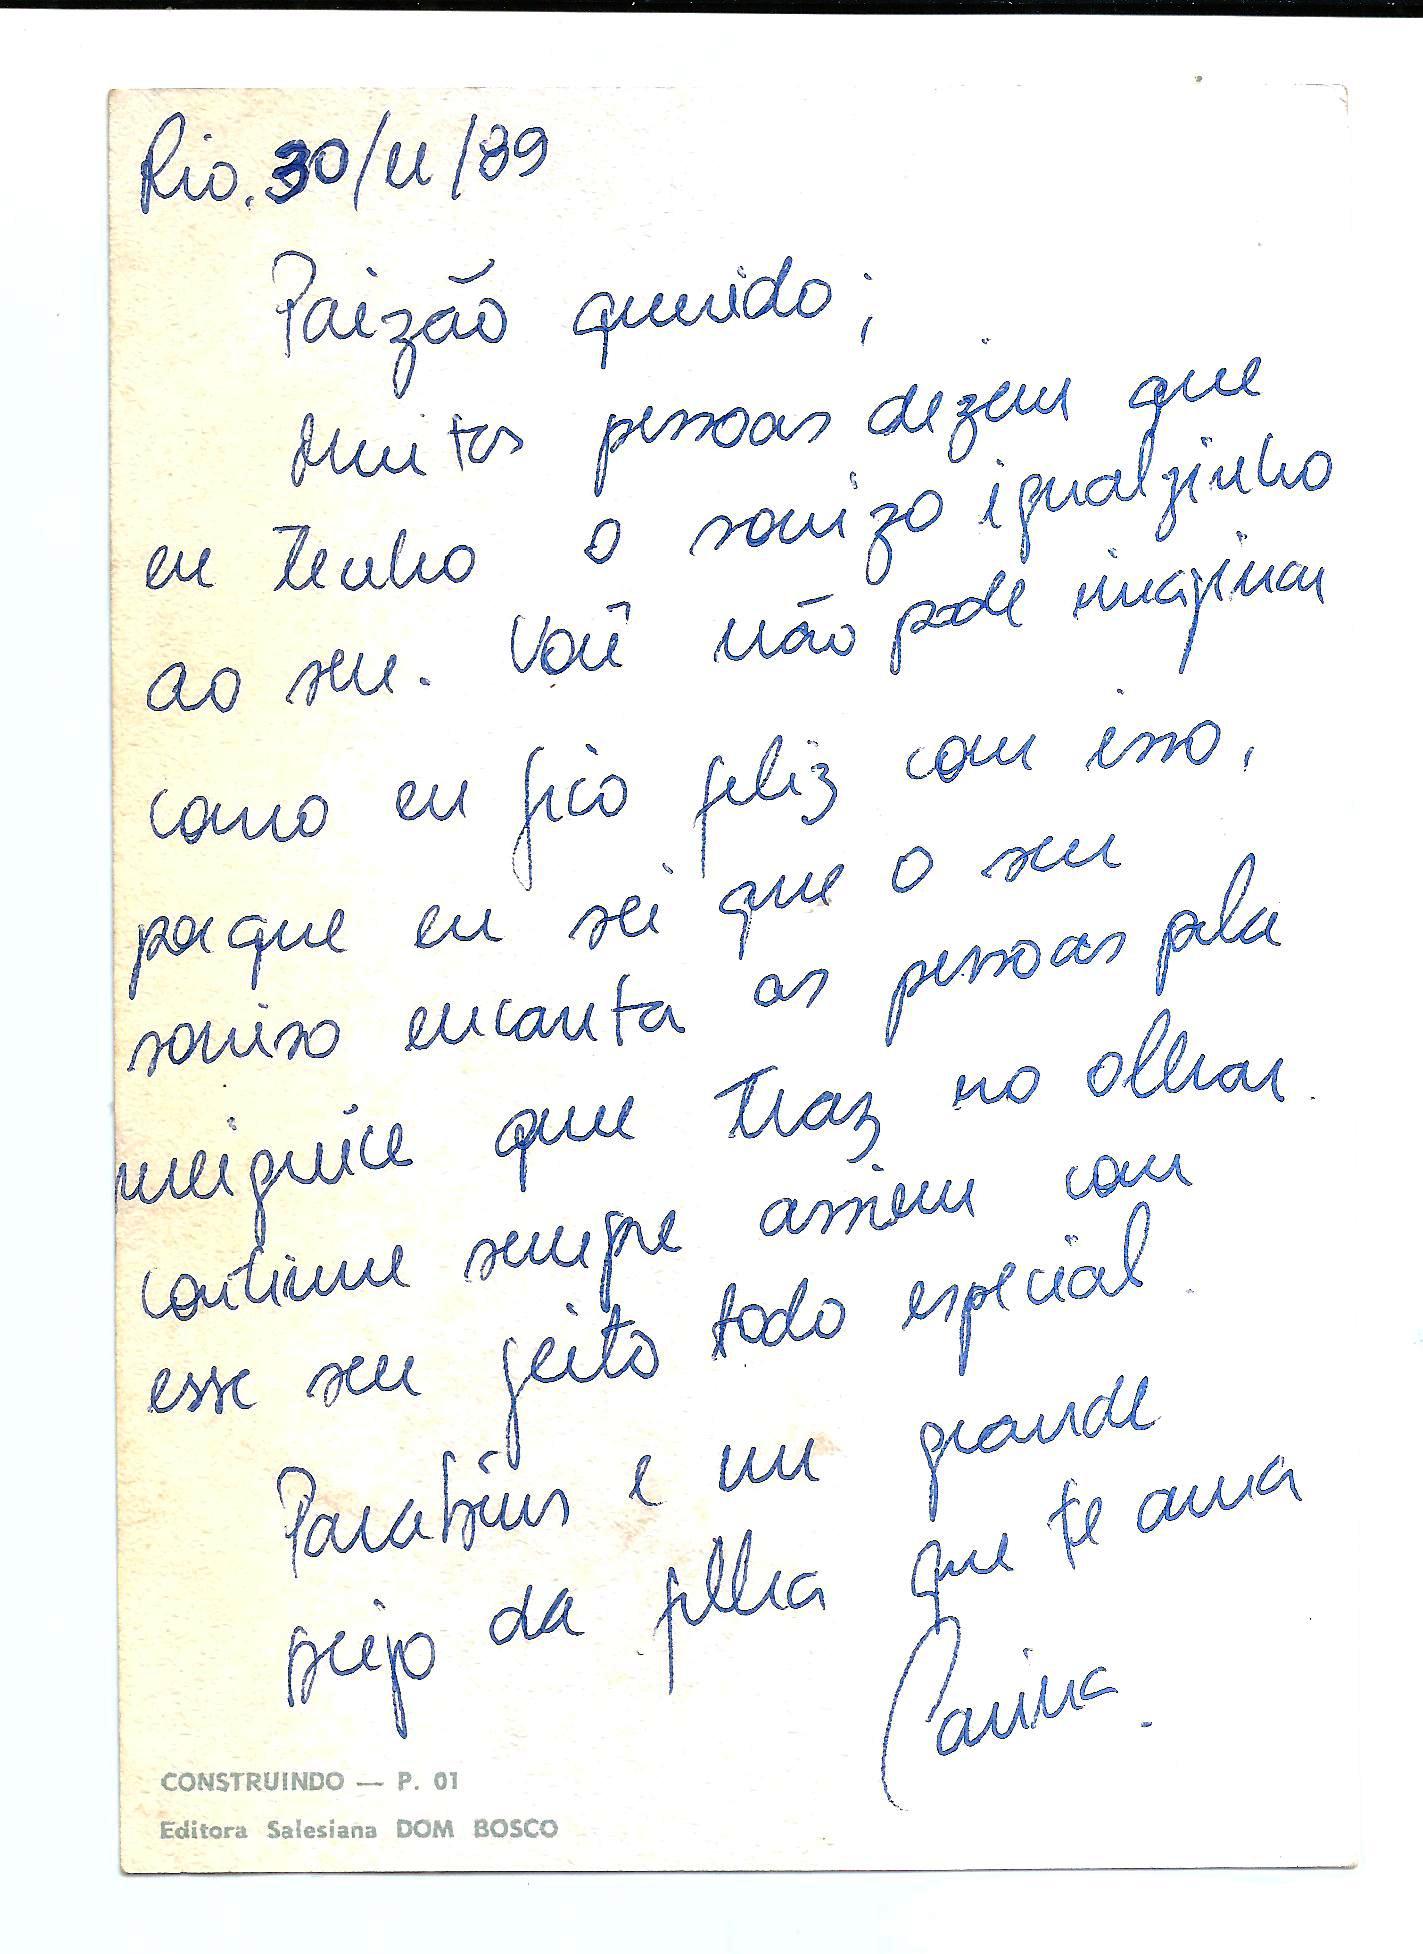 Rio, 30/11/89
Paizão querido;
Muitas pessoas dizem que
eu tenho o sorrizo igualzinho
ao seu. Você não pode imaginar
como eu fico feliz com isso,
porque eu sei que o seu
sorriso encanta as pessoas pela
meiguice que traz no olhar.
Continue sempre assim com
esse seu jeito todo especial.
Parabéns e um grande
beijo da filha que te ama
Carina.
CONSTRUINDO — P. 01
Editora Salesiana DOM BOSCO